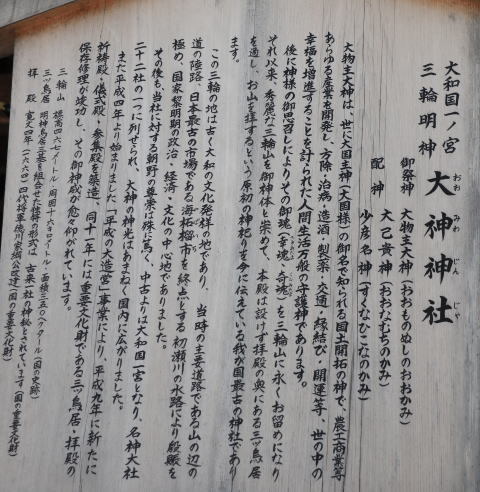 大和国一ノ宮
三輪明神
大神神社
おお みわ じん じゃ
御祭神 大物主大神(おおものぬしのおおかみ)
配神 大己貴神(おおなむちのかみ)
少彦名神(すくなひこなのかみ)
大物主大神は、世に大国主神(大国様)の御名で知られる国土開拓の神で、農工商業等
あらゆる産業を開発し、方除・治病・造酒・製薬・交通・縁結び・開運等、世の中の
幸福を増進することを計られた人間生活万般の守護神であります。
後に神様の御思召しによりその御魂(幸魂・奇魂)を三輪山に永くお留めになり
それ以来、秀麗な三輪山を御神体と崇めて、本殿は設けず拝殿の奥にある三ッ鳥居
を通し、お山を拝するという原初の神祀りを今に伝えている我が国最古の神社であり
ます。
この三輪の地は古く大和の文化発祥の地であり、当時の主要道路である山の辺の
道の陸路、日本最古の市場である海柘榴市を終点とする初瀬川の水路により殷賑を
極め、国家黎明期の政治・経済・文化の中心地でありました。
その後も、当社に対する朝野の尊崇は殊に篤く、中古よりは大和国一宮となり、名神大社
二十二社の一つに列せられ、大神の神光はあまねく国内に広がりました。
また平成四年より始まりました「平成の大造営」事業により、平成九年に新たに
祈祷殿・儀式殿・参集殿を築造、同十一年には重要文化財である三ッ鳥居・拝殿の
保存修理が竣功し、その御神威が愈々仰がれています。
三輪山 標高四六七メートル・周囲十六キロメートル・面積三五〇ヘクタール(国の史跡)
三ッ鳥居 明神鳥居三基を組合せた独特の形式は、古来一社の神秘とされています(国の重要文化財)
拝殿 寛文四年(一六六四)四代将軍徳川家綱公造建(国の重要文化財)